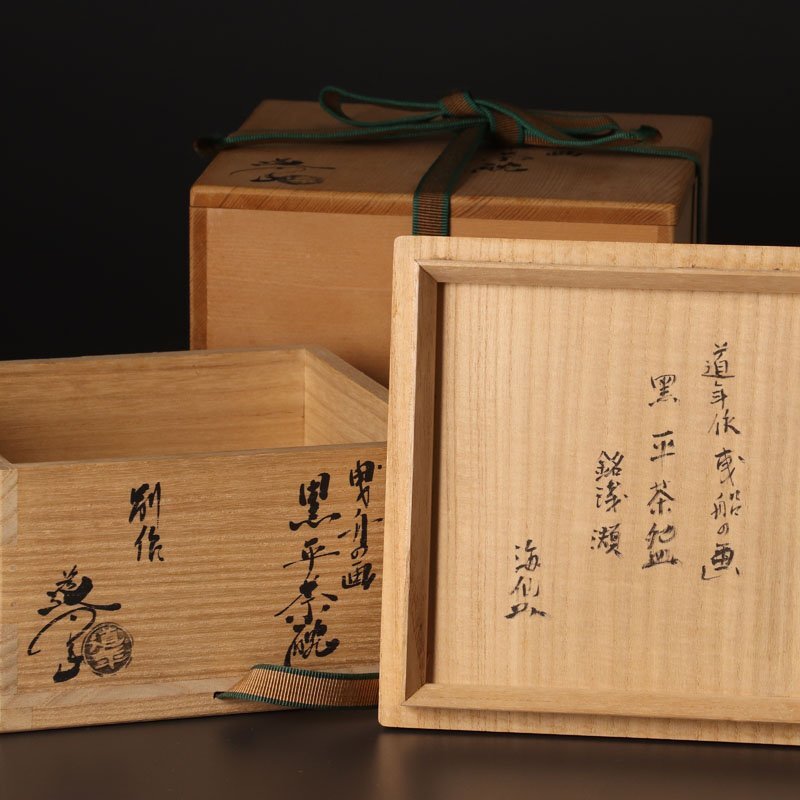 道年作 曳船の画
黒平茶盌
銘 浅瀬
海仙
曳舟の画
黒平茶碗
別作
道年